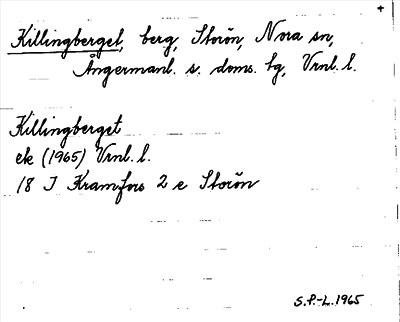 +
Killingberget, berg, Storön, Nora sn,
Ångermanl. s. doms. tg, Vrnl. l.
Killingberget
ek (1965) Vrnl. l.
18 I Kramfors 2 e Storön
S.P.-L. 1965